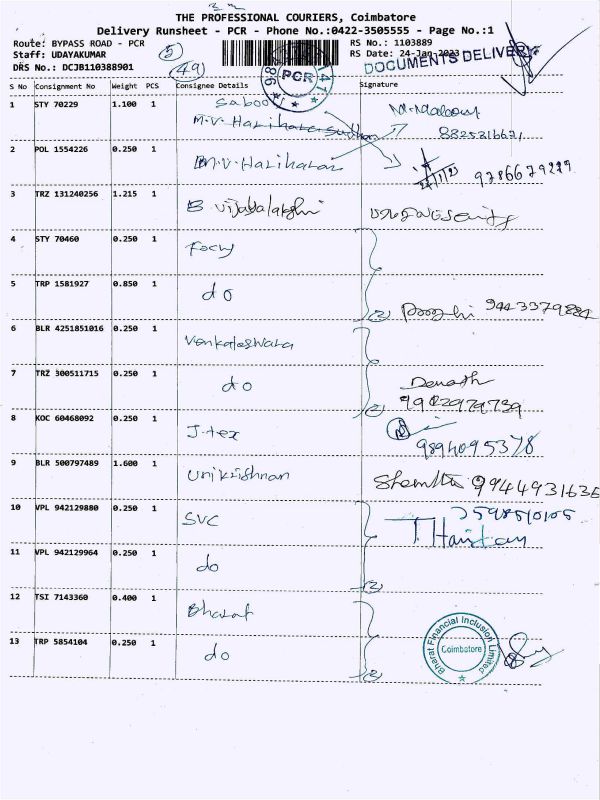 THE PROFESSIONAL COURIERS, Coimbatore
Delivery Runsheet - PCR - Phone No.:0422-3505555 - Page No.:1
Route: BYPASS ROAD - PCR
Staff: UDAYAKUMAR
DRS No.: DCJB110388901
5
49
PCR
RS No.: 1103889
RS Date: 24-Jan-2023
DOCUMENTS DELIVERY
S No Consignment No Weight PCS Consignee Details Signature
1 STY 70229 1.100 1 Saboo
M.V. Hariharasudhan
8825216671
2 POL 1554226 0.250 1 M.V. Hariharan 9786679229
3 TRZ 131240256 1.215 1 B. Vijayalakshi
4 STY 70460 0.250 1
5 TRP 1581927 0.850 1 do 2 9443379884
6 BLR 4251851016 0.250 1 Venkateswara
7 TRZ 300511715 0.250 1 do 2
8 KOC 60468092 0.250 1 J.tex 9894095378
9 BLR 500797489 1.600 1 Unikrishnan 9944931636
10 VPL 942129880 0.250 1 SVC
11 VPL 942129964 0.250 1 do 2
12 TSI 7143360 0.400 1 Bharat
13 TRP 5854104 0.250 1 do 2
Bharat Financial Inclusion Limited
Coimbatore